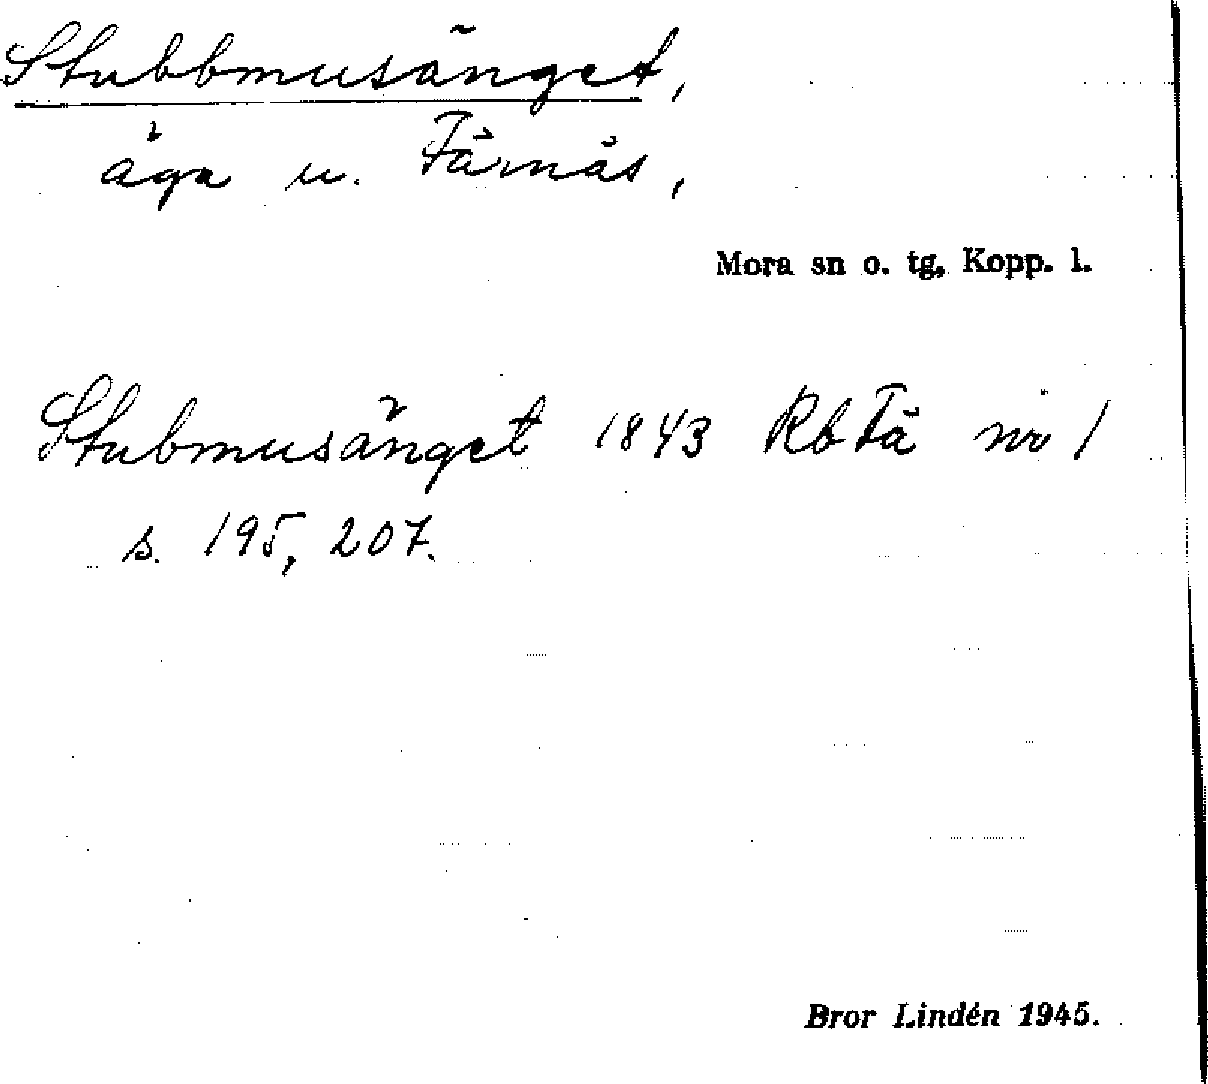 Stubbmusänget,
äga u. Färnäs,
Mora sn o. tg, Kopp. l.
Stubmusänget 1843 Rb Fä nr 1
s. 195, 207.
Bror Lindén 1945.